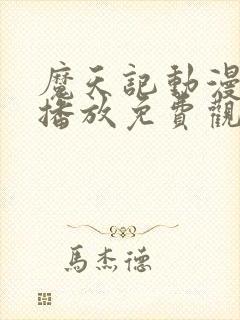 魔天記動漫
播放免費觀
馬杰德